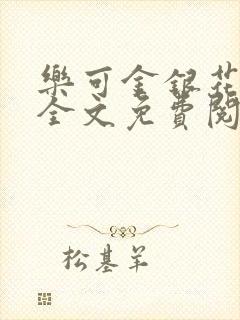 樂可金銀花
全文免費閱
松基羊